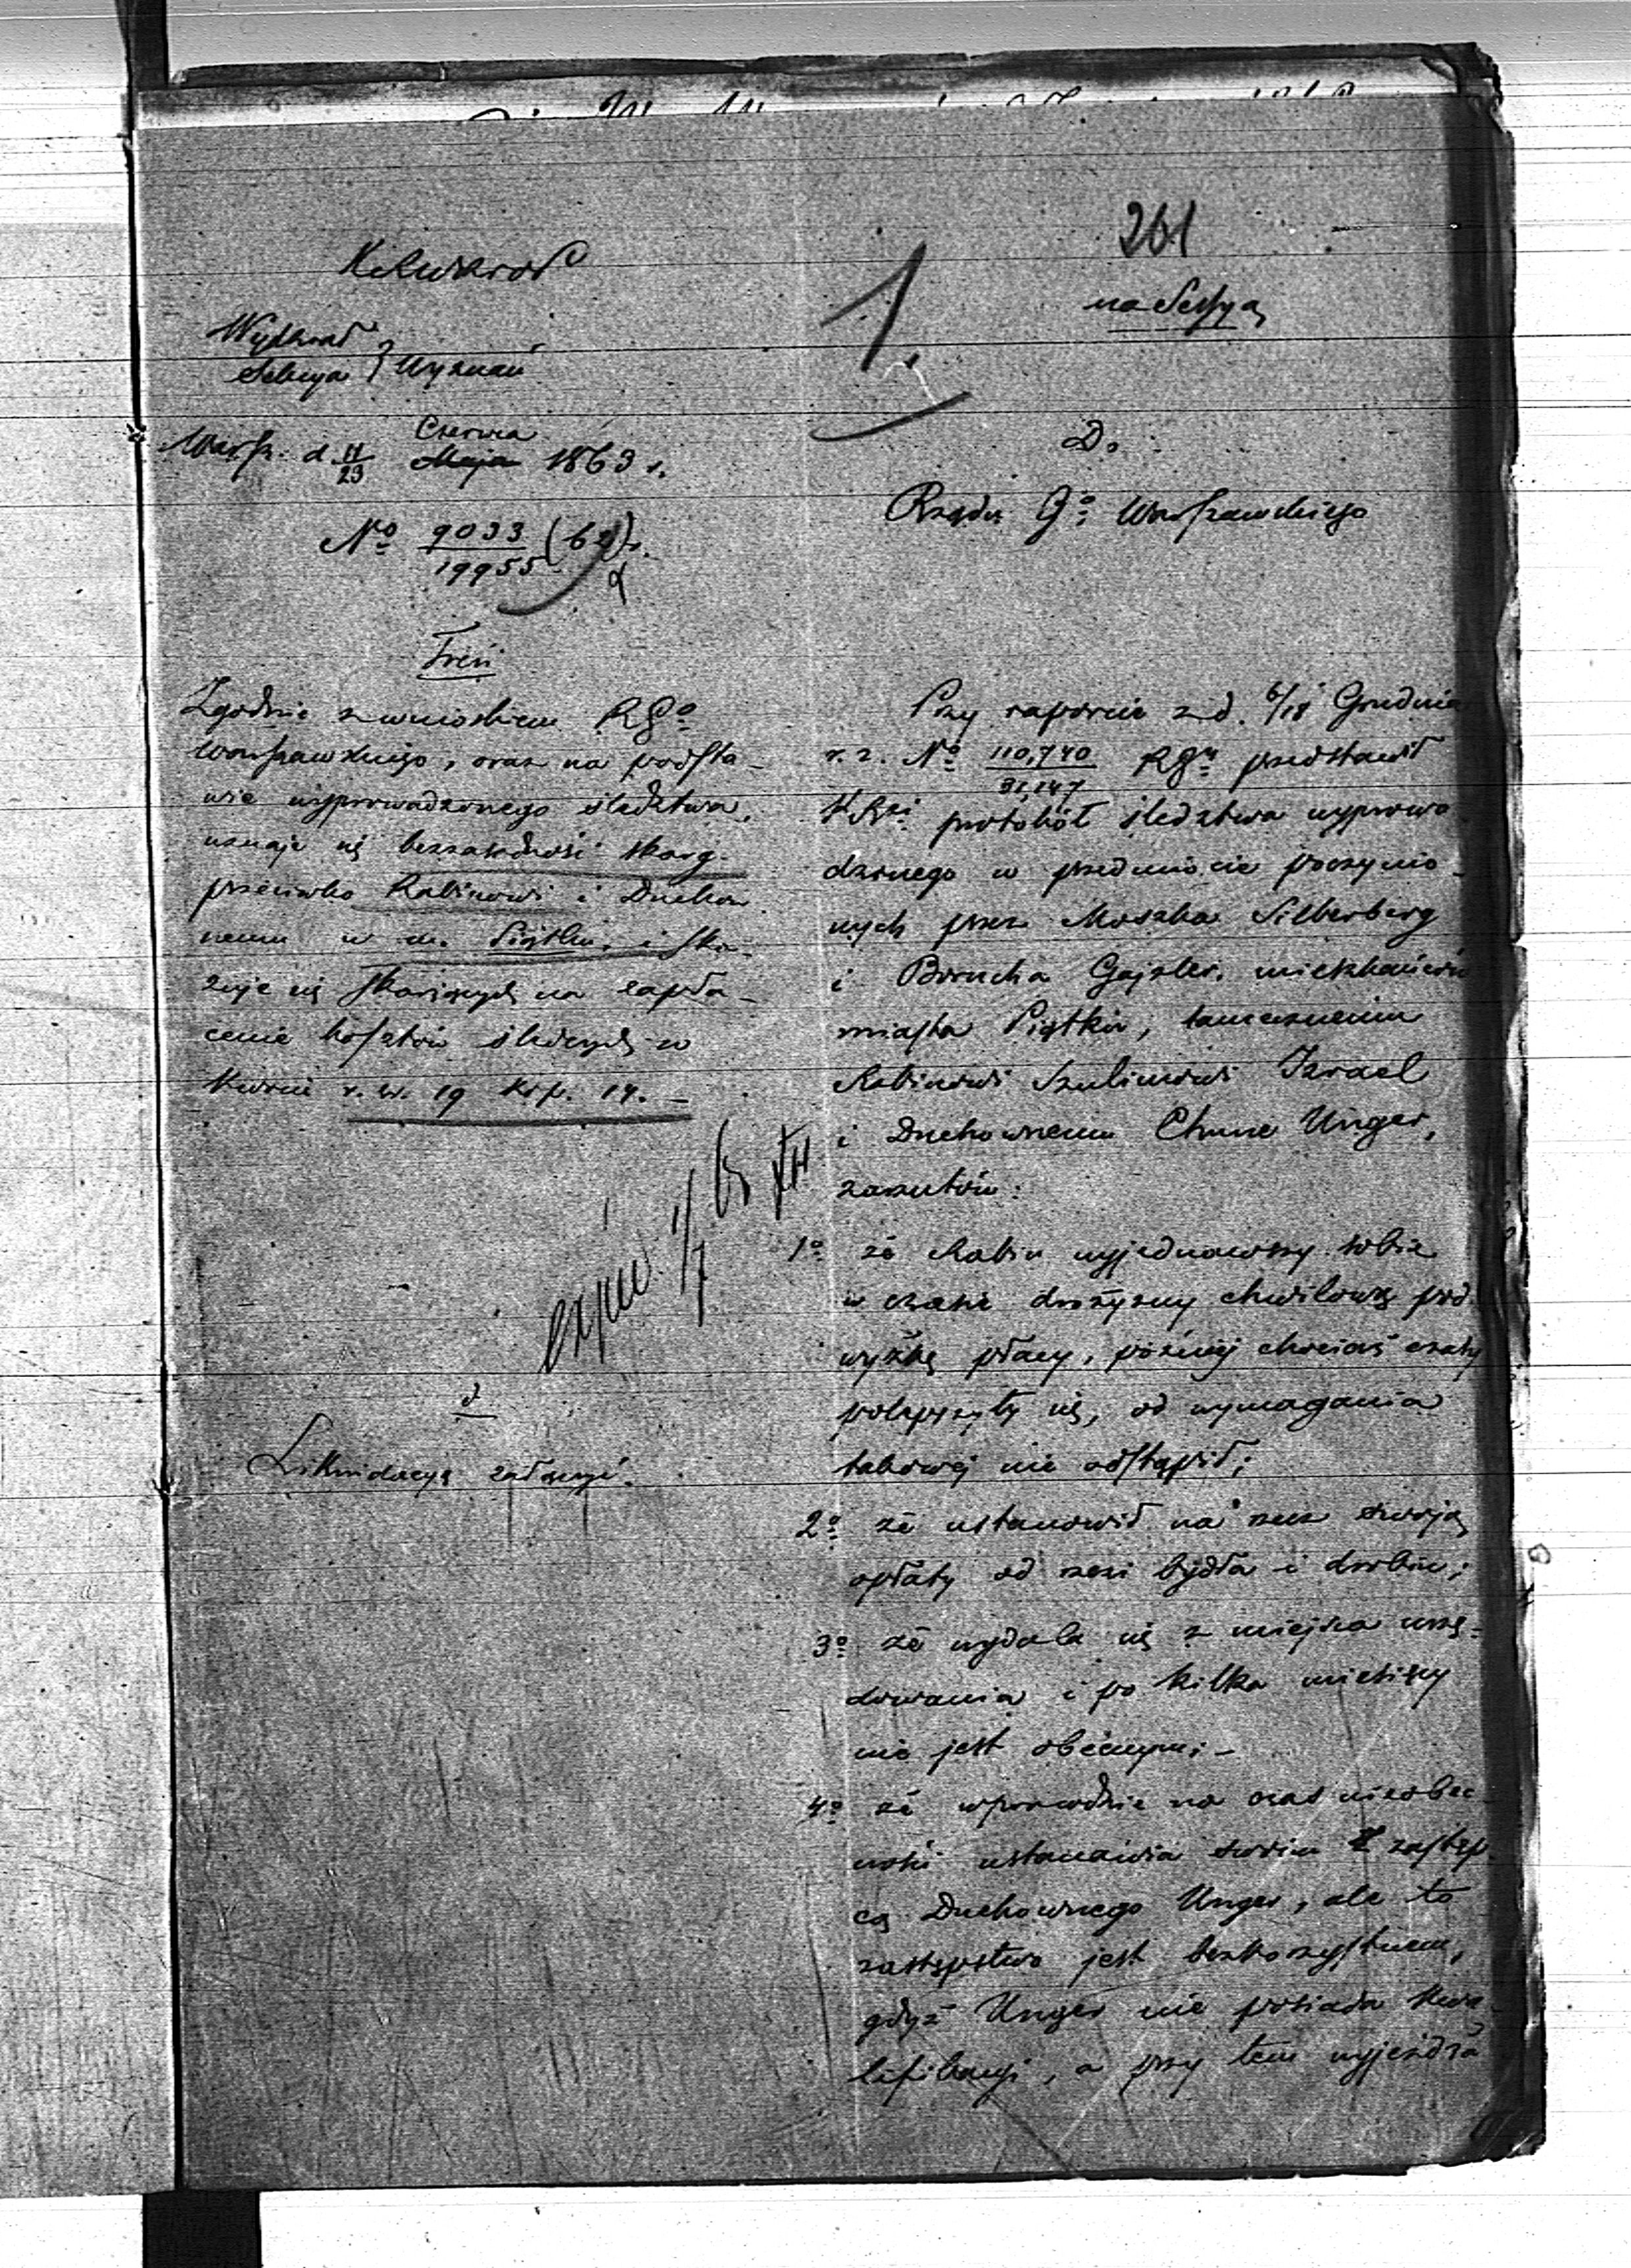 261
na Sessyą
1.
Wydział
Sekcya } Wyznań
Warsz. d. 11/23 Czerwca Maja 1863 r.
No 9033/19955 (62)
Treść
Zgodnie z wnioskiem RGo
Warszawskiego, oraz na podsta-
wie wyprowadzonego śledztwa,
uznaje się bezzasadność skarg
przeciwko Rabinowi i Duchow
nemu w m. Piątku, i ska-
zuje się skarżących na zapła-
cenie kosztów śledczych w
kwocie r. sr. 19 kop. 14. –
Likwidacyą załączyć.
Do
Rządu Go Warszawskiego
Przy raporcie z d. 6/18 Grudnia
r. z. No 110,740/31,147 RGn przedstawił
KRzi protokół śledztwa wyprowa
dzonego w przedmiocie poczynio-
nych przez Moszka Silberberg
i Borucha Gajzler, mieszkańców
miasta Piątku, tamecznemu
Rabinowi Szulimowi Izrael
i Duchownemu Chune Unger,
zarzutów:
1o że Rabin wyjednawszy sobie
w czasie drożyzny chwilową pod
wyżkę płacy, później chociaż czasy
polepszyły się, od wymagania
takowej nie odstąpił;
2o że ustanowił na rzecz swoją
opłaty od rzezi bydła i drobiu;
3o że wydala się z miejsca urzę-
dowania i po kilka miesięcy
nie jest obecnym; –
4o że wprawdzie na czas nieobec-
ności ustanawia swoim zastęp
cą Duchownego Unger, ale to
zastępstwo jest bezkorzystnem,
gdyż Unger nie posiada kwa-
lifikacyi, a przy tem wyjeżdża